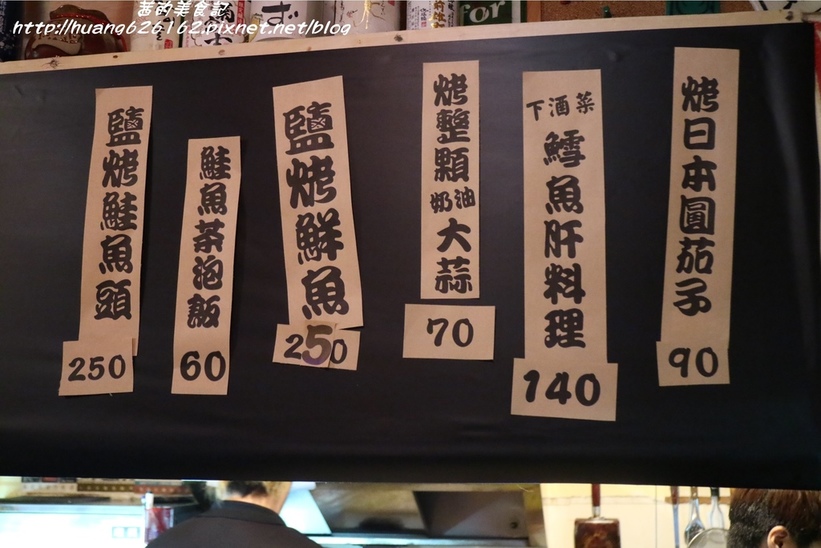 茜的美食記
http://huang626162.pixnet.net/blog
for
鹽烤鮭魚頭
250
鮭魚茶泡飯
60
鹽烤鮮魚
250
烤整顆奶油大蒜
70
下酒菜
鱈魚肝料理
140
烤日本圓茄子
90